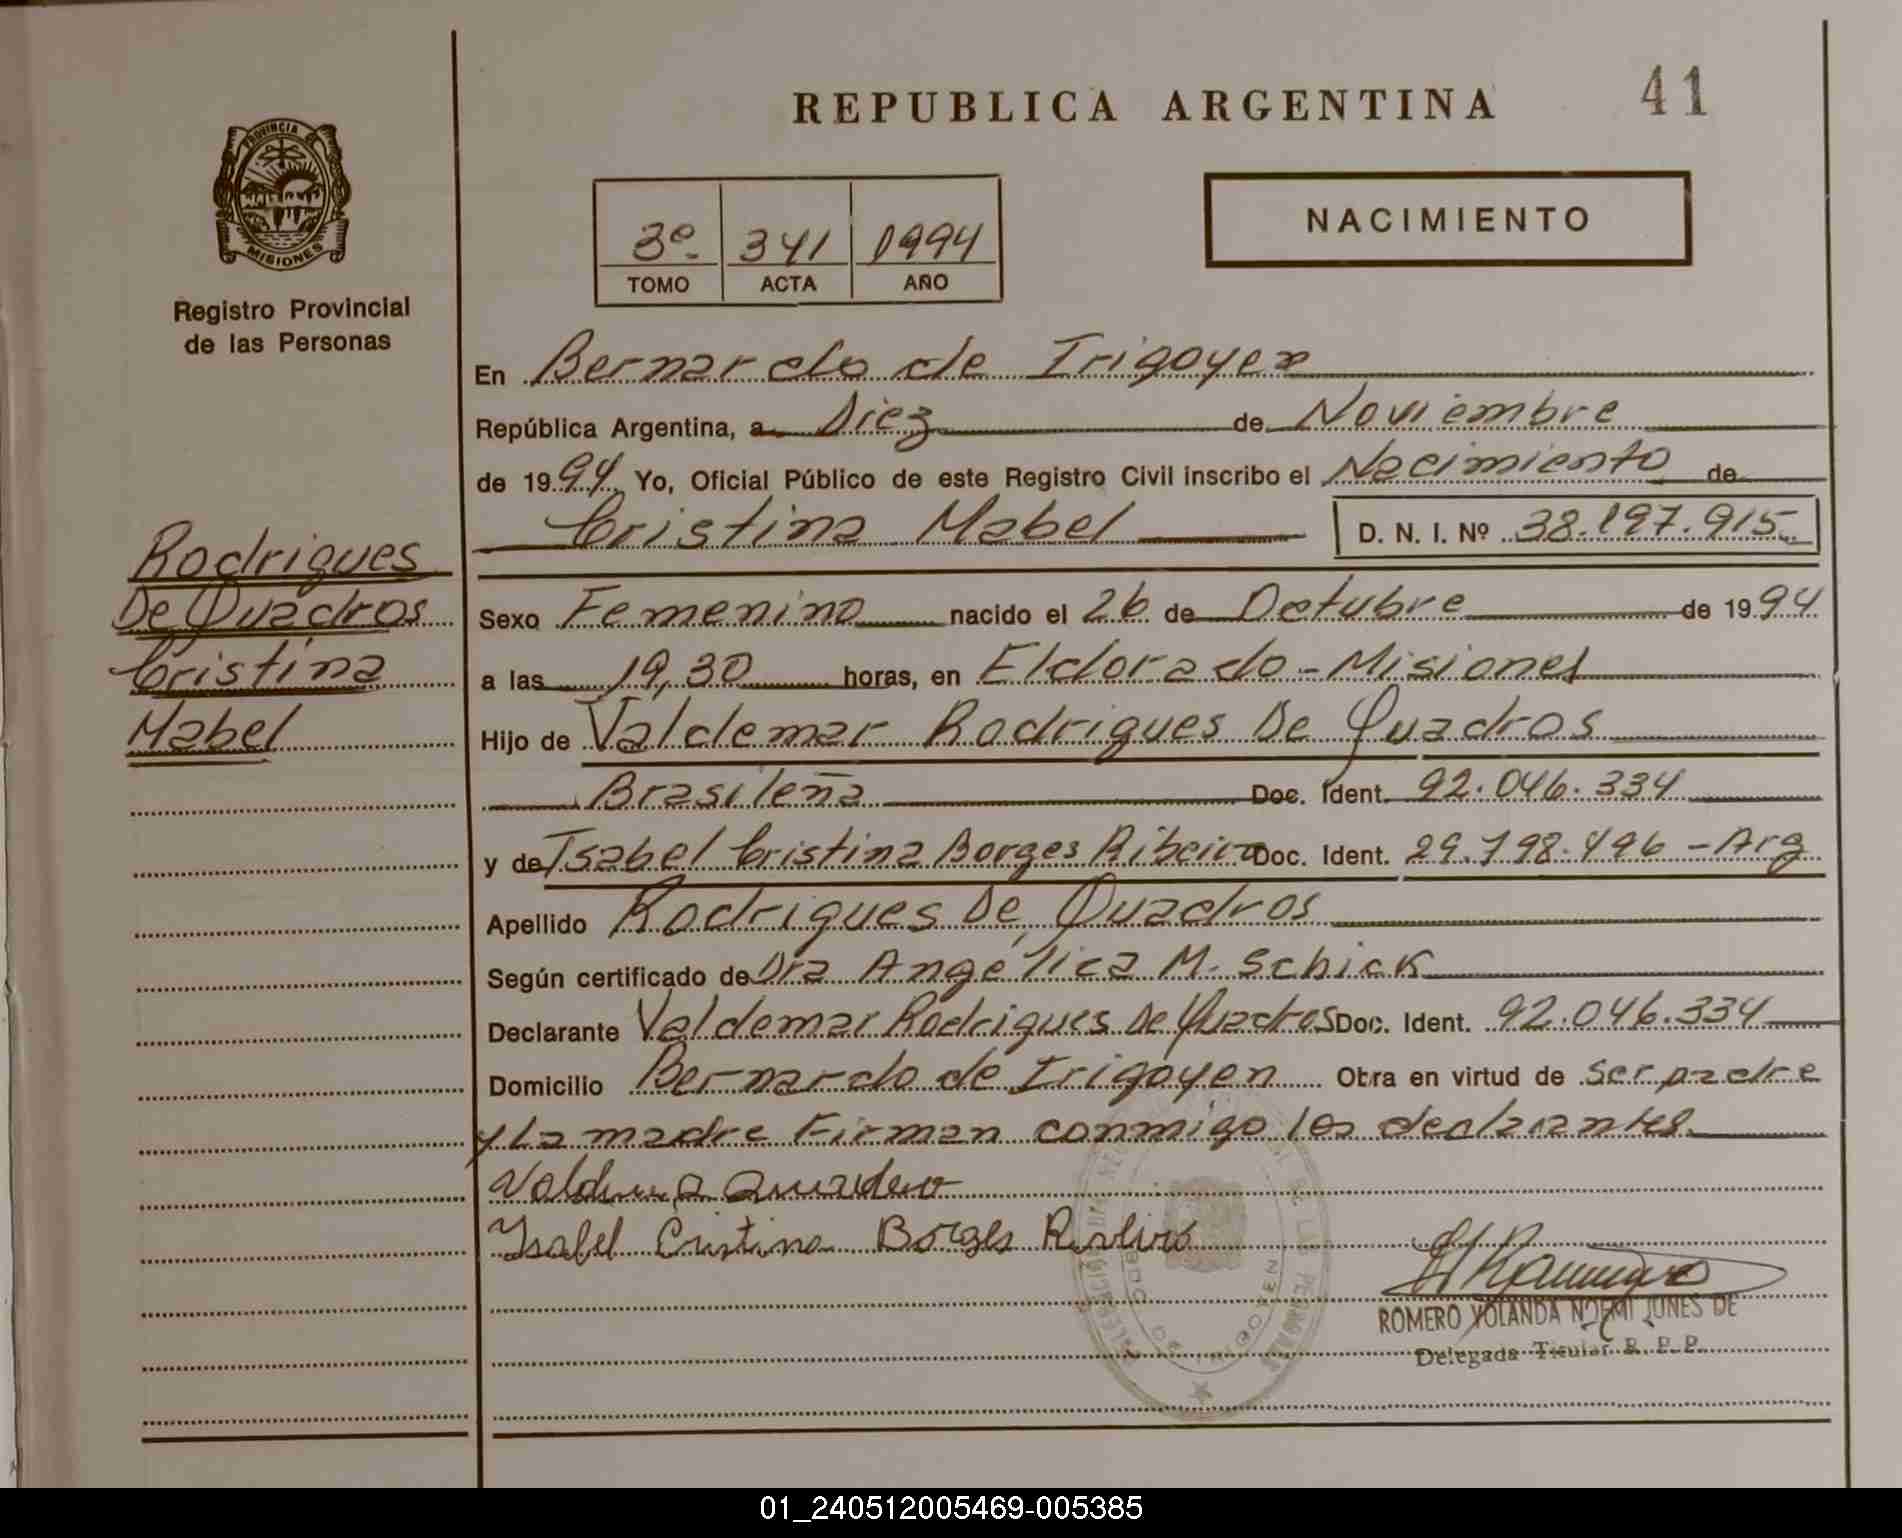 REPUBLICA ARGENTINA
41
PROVINCIA
MISIONES
Registro Provincial
de las Personas
3º 341 1994
TOMO ACTA AÑO
NACIMIENTO
En Bernardo de Irigoyen
República Argentina, a Diez de Noviembre
de 1994 Yo, Oficial Público de este Registro Civil inscribo el Nacimiento de
Cristina Mabel D. N. I. Nº 38.197.915
Rodrigues
De Quadros
Cristina
Mabel
Sexo Femenino nacido el 26 de Octubre de 1994
a las 19,30 horas, en Eldorado - Misiones
Hijo de Valdemar Rodrigues De Quadros
Brasileña Doc. Ident. 92.046.334
y de Isabel Cristina Borges Ribeiro Doc. Ident. 29.798.496 - Arg
Apellido Rodrigues De Quadros
Según certificado de Dra Angélica M. Schick
Declarante Valdemar Rodrigues De Quadros Doc. Ident. 92.046.334
Domicilio Bernardo de Irigoyen Obra en virtud de ser padre
y La madre Firman conmigo los declarantes.
Isabel Cristina Borges
ROMERO YOLANDA NOEMI JUNES DE
Delegada Titular R. P. P.
01_240512005469-005385